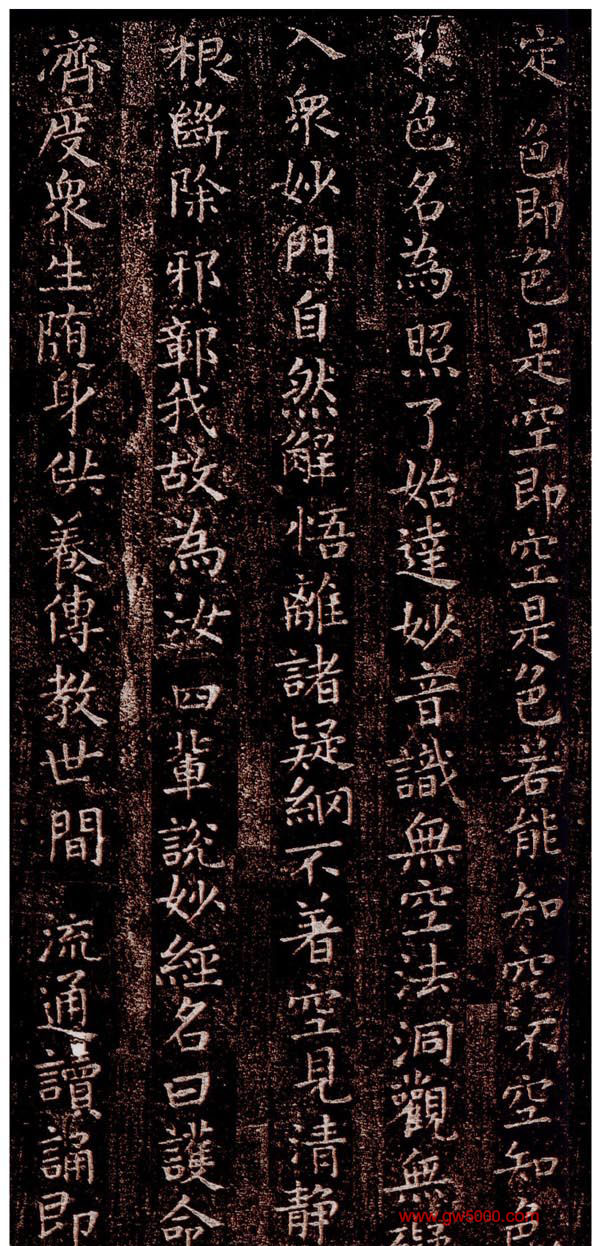 定 色即色是空即空是色若能知空不空知色
不色名為照了始達妙音識無空法洞觀無
入衆妙門自然解悟離諸疑網不著空見清静
根斷除邪鄣我故為汝四輩說妙經名曰護命
濟度衆生随身供養傳教世間 流通讀誦即
www.gw5000.com